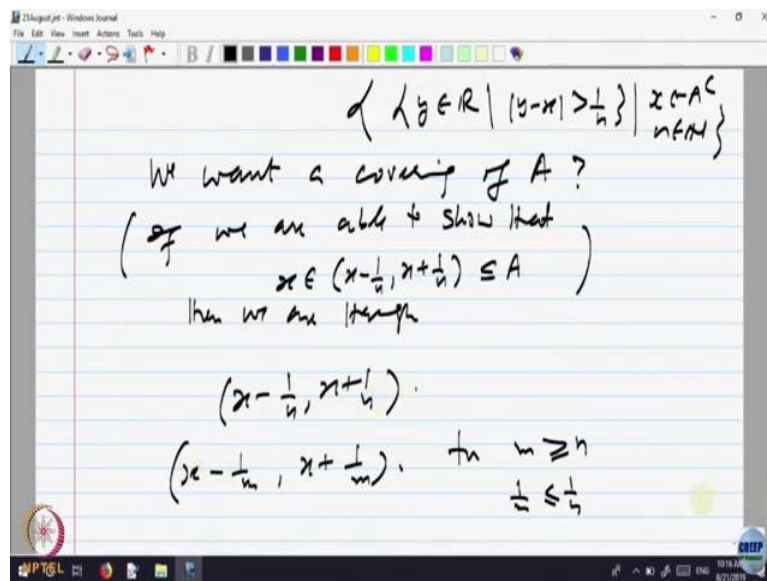 21August.jnt - Windows Journal
File Edit View Insert Actions Tools Help
{ {y ∈ ℝ | |y-x| > 1/n} | x ∈ A^c
n ∈ ℕ }
We want a covering of A ?
( If we are able to show that
x ∈ (x-1/n, x+1/n) ⊆ A )
then we are through
(x - 1/n, x + 1/n).
(x - 1/m, x + 1/m). for m ≥ n
1/m ≤ 1/n
NPTEL
ENG
10:16 A
8/21/2019
CDEEP